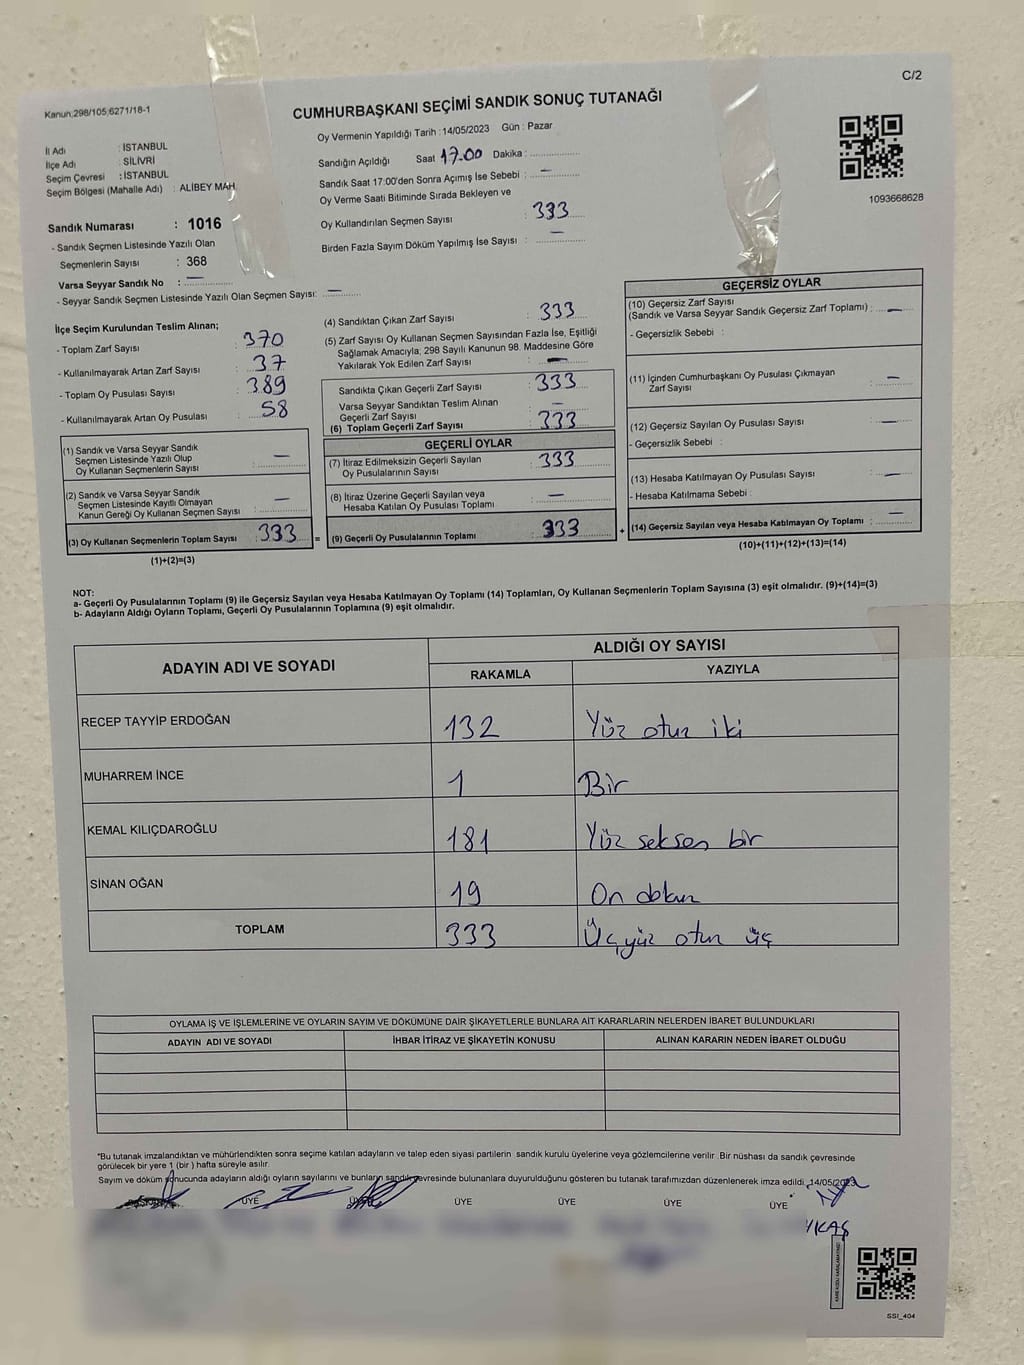 C/2
Kanun;298/105;6271/18-1
CUMHURBAŞKANI SEÇİMİ SANDIK SONUÇ TUTANAĞI
Oy Vermenin Yapıldığı Tarih : 14/05/2023 Gün : Pazar
İl Adı : İSTANBUL
İlçe Adı : SİLİVRİ
Seçim Çevresi : İSTANBUL
Seçim Bölgesi (Mahalle Adı) : ALİBEY MAH.
Sandığın Açıldığı Saat 17.00 Dakika :
Sandık Saat 17:00'den Sonra Açımış İse Sebebi : —
Oy Verme Saati Bitiminde Sırada Bekleyen ve
Oy Kullandırılan Seçmen Sayısı : 333
Birden Fazla Sayım Döküm Yapılmış İse Sayısı : —
1093668628
Sandık Numarası : 1016
- Sandık Seçmen Listesinde Yazılı Olan
Seçmenlerin Sayısı : 368
Varsa Seyyar Sandık No : —
- Seyyar Sandık Seçmen Listesinde Yazılı Olan Seçmen Sayısı: —
İlçe Seçim Kurulundan Teslim Alınan;
- Toplam Zarf Sayısı : 370
- Kullanılmayarak Artan Zarf Sayısı : 37
- Toplam Oy Pusulası Sayısı : 389
- Kullanılmayarak Artan Oy Pusulası : 58
(1) Sandık ve Varsa Seyyar Sandık
Seçmen Listesinde Yazılı Olup
Oy Kullanan Seçmenlerin Sayısı : —
(2) Sandık ve Varsa Seyyar Sandık
Seçmen Listesinde Kayıtlı Olmayan
Kanun Gereği Oy Kullanan Seçmen Sayısı : —
(3) Oy Kullanan Seçmenlerin Toplam Sayısı : 333
(1)+(2)=(3)
(4) Sandıktan Çıkan Zarf Sayısı : 333
(5) Zarf Sayısı Oy Kullanan Seçmen Sayısından Fazla İse, Eşitliği
Sağlamak Amacıyla; 298 Sayılı Kanunun 98. Maddesine Göre
Yakılarak Yok Edilen Zarf Sayısı : —
Sandıkta Çıkan Geçerli Zarf Sayısı : 333
Varsa Seyyar Sandıktan Teslim Alınan
Geçerli Zarf Sayısı : —
(6) Toplam Geçerli Zarf Sayısı : 333
GEÇERLİ OYLAR
(7) İtiraz Edilmeksizin Geçerli Sayılan
Oy Pusulalarının Sayısı : 333
(8) İtiraz Üzerine Geçerli Sayılan veya
Hesaba Katılan Oy Pusulası Toplamı : —
= (9) Geçerli Oy Pusulalarının Toplamı : 333 +
GEÇERSİZ OYLAR
(10) Geçersiz Zarf Sayısı
(Sandık ve Varsa Seyyar Sandık Geçersiz Zarf Toplamı) : —
- Geçersizlik Sebebi :
(11) İçinden Cumhurbaşkanı Oy Pusulası Çıkmayan
Zarf Sayısı : —
(12) Geçersiz Sayılan Oy Pusulası Sayısı : —
- Geçersizlik Sebebi :
(13) Hesaba Katılmayan Oy Pusulası Sayısı : —
- Hesaba Katılmama Sebebi :
(14) Geçersiz Sayılan veya Hesaba Katılmayan Oy Toplamı : —
(10)+(11)+(12)+(13)=(14)
NOT:
a- Geçerli Oy Pusulalarının Toplamı (9) ile Geçersiz Sayılan veya Hesaba Katılmayan Oy Toplamı (14) Toplamları, Oy Kullanan Seçmenlerin Toplam Sayısına (3) eşit olmalıdır. (9)+(14)=(3)
b- Adayların Aldığı Oyların Toplamı, Geçerli Oy Pusulalarının Toplamına (9) eşit olmalıdır.
ADAYIN ADI VE SOYADI ALDIĞI OY SAYISI
RAKAMLA YAZIYLA
RECEP TAYYİP ERDOĞAN 132 Yüz otuz iki
MUHARREM İNCE 1 Bir
KEMAL KILIÇDAROĞLU 181 Yüz seksen bir
SİNAN OĞAN 19 On dokuz
TOPLAM 333 Üçyüz otuz üç
OYLAMA İŞ VE İŞLEMLERİNE VE OYLARIN SAYIM VE DÖKÜMÜNE DAİR ŞİKAYETLERLE BUNLARA AİT KARARLARIN NELERDEN İBARET BULUNDUKLARI
ADAYIN ADI VE SOYADI İHBAR İTİRAZ VE ŞİKAYETİN KONUSU ALINAN KARARIN NEDEN İBARET OLDUĞU
*Bu tutanak imzalandıktan ve mühürlendikten sonra seçime katılan adayların ve talep eden siyasi partilerin sandık kurulu üyelerine veya gözlemcilerine verilir. Bir nüshası da sandık çevresinde
görülecek bir yere 1 (bir) hafta süreyle asılır.
Sayım ve döküm sonucunda adayların aldığı oyların sayılarını ve bunların sandık çevresinde bulunanlara duyurulduğunu gösteren bu tutanak tarafımızdan düzenlenerek imza edildi. 14/05/2023
BAŞKAN ÜYE ÜYE ÜYE ÜYE ÜYE ÜYE
SSI_404